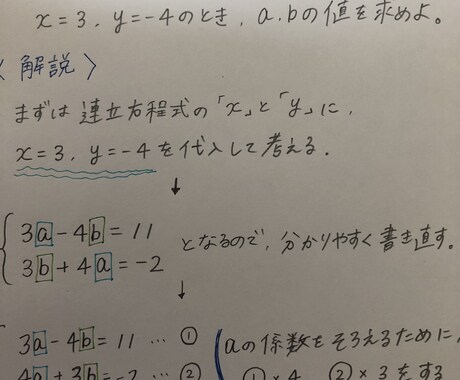 x=3, y=-4のとき, a.bの値を求めよ。
〈解説〉
まずは連立方程式の「x」と「y」に,
x=3, y=-4を代入して考える.
↓
3a-4b=11
3b+4a=-2
となるので, 分かりやすく書き直す。
↓
3a-4b=11 … ①
4a+3b=-2 … ②
aの係数をそろえるために,
①×4, ②×3をする